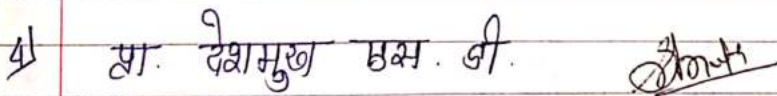 4) प्रा. देशमुख एस. डी.